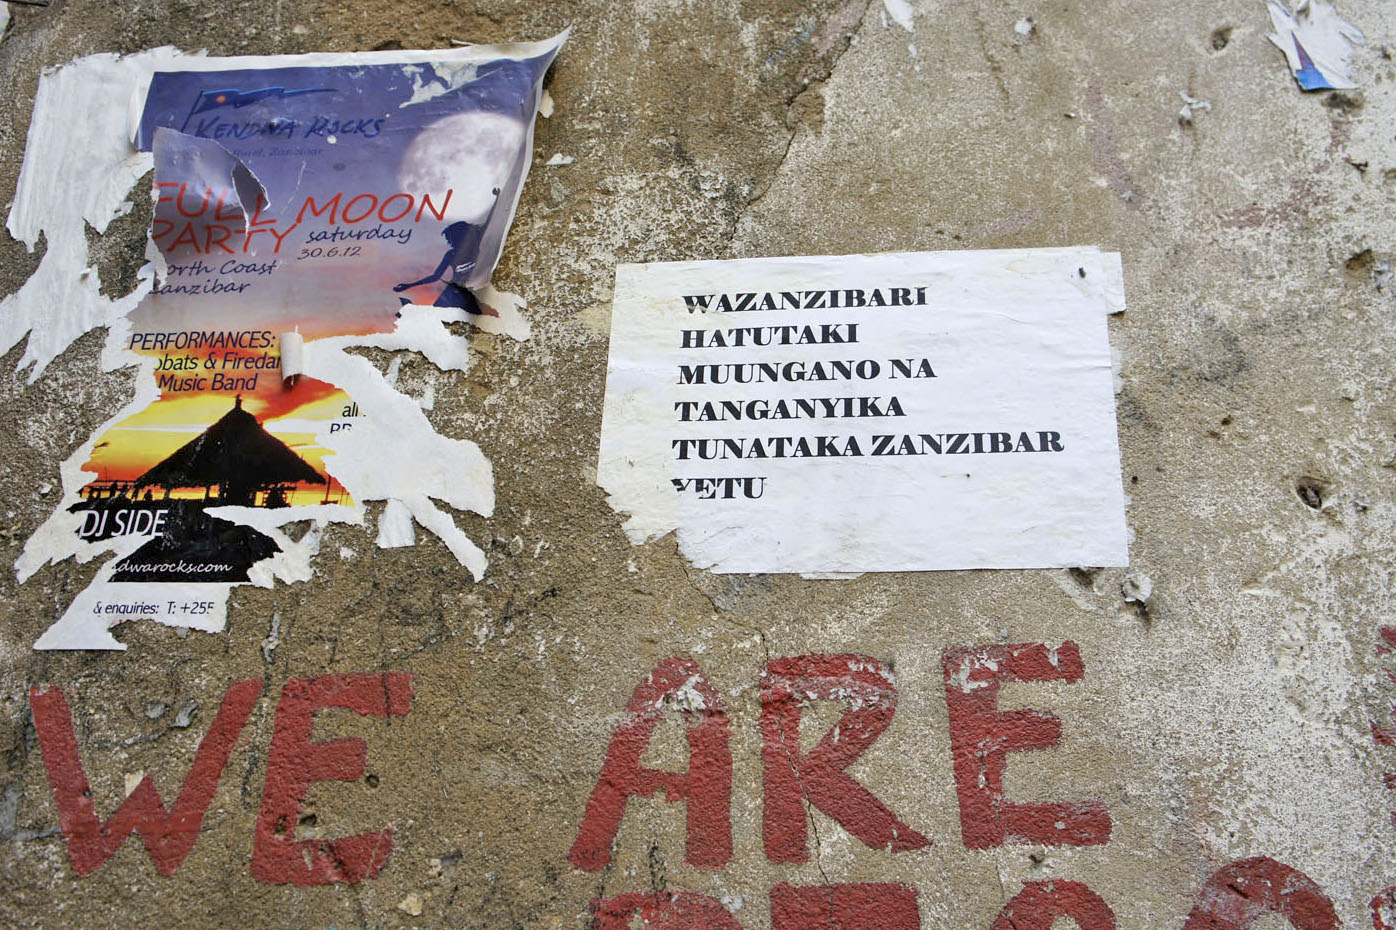 KENDWA ROCKS
Zanzibar
FULL MOON
PARTY saturday
30.6.12
orth Coast
Zanzibar
PERFORMANCES:
obats & Firedan
Music Band
DJ SIDE
dwarocks.com
& enquiries: T: +255
WAZANZIBARI
HATUTAKI
MUUNGANO NA
TANGANYIKA
TUNATAKA ZANZIBAR
YETU
WE ARE